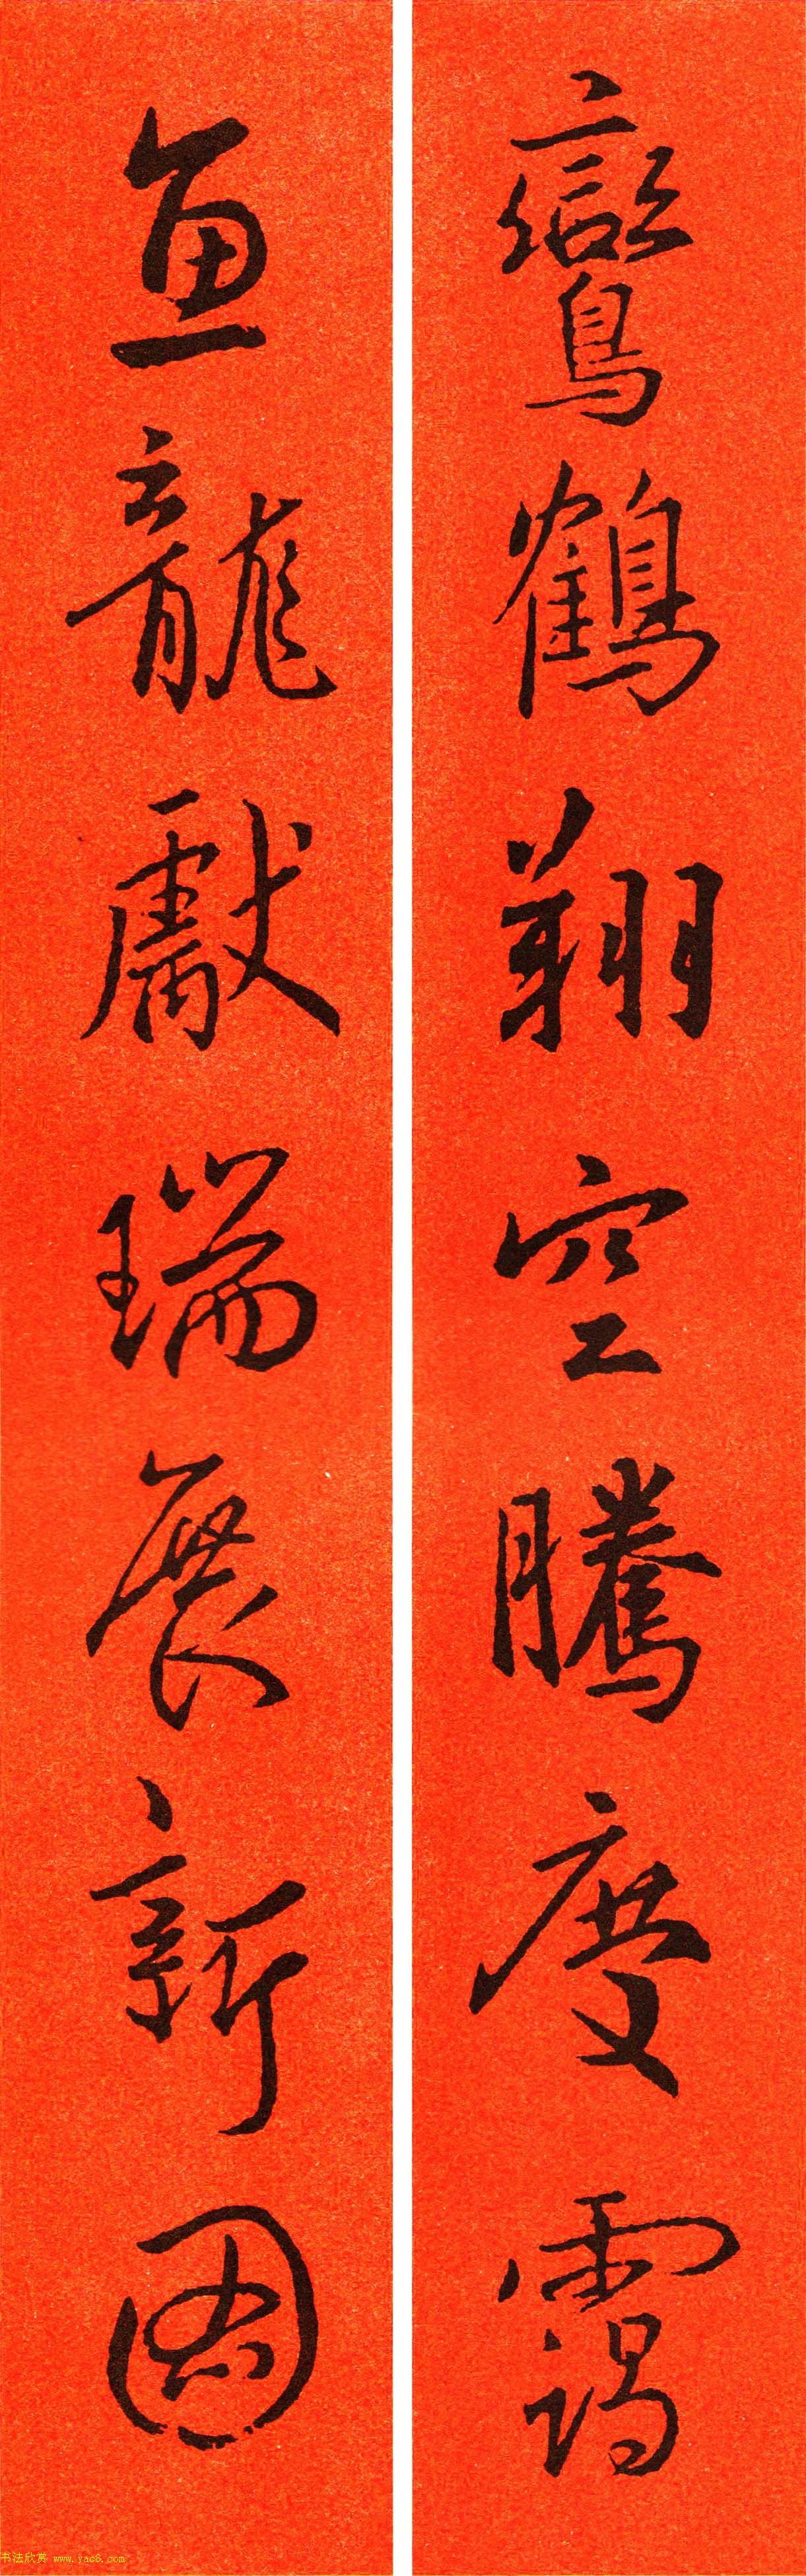 鸞鶴翔空騰慶靄
魚龍獻瑞展新圖
书法欣赏 www.yac8.com